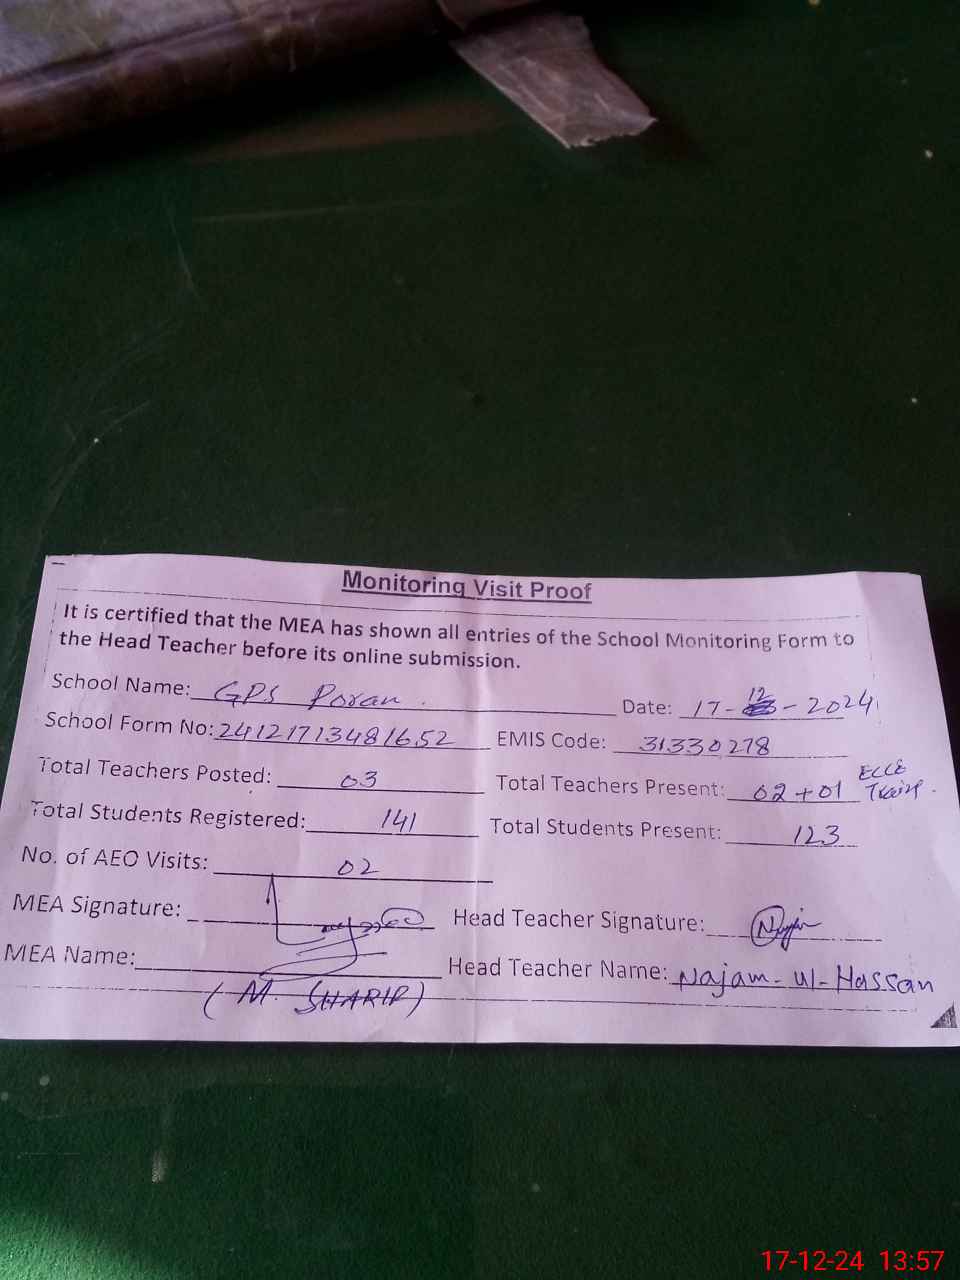 Monitoring Visit Proof
It is certified that the MEA has shown all entries of the School Monitoring Form to
the Head Teacher before its online submission.
School Name: GPS Poran . Date: 17-12-2024
School Form No: 24121713481652 EMIS Code: 31330278
Total Teachers Posted: 03 Total Teachers Present: 02+01 ECCE
Total Students Registered: 141 Total Students Present: 123
No. of AEO Visits: 02
MEA Signature: Head Teacher Signature:
MEA Name: Head Teacher Name: Najam-ul-Hassan
(M. SHARIF)
17-12-24 13:57